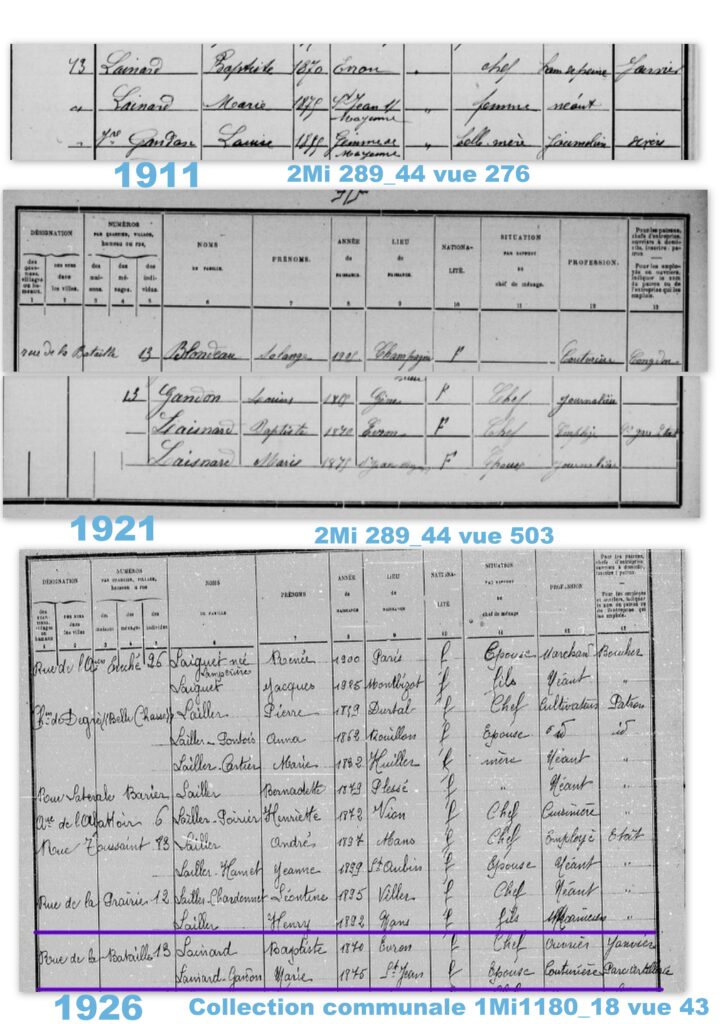 13 Lainard Baptiste 1870 Evron " chef hom de peine Janvier
" Lainard Marie 1875 St Jean s/ Mayenne " femme néant
" Vve Gandon Louise Gemme de Mayenne " belle-mère
1911 2Mi 289_44 vue 276
DÉSIGNATION
des quartiers, villages ou hameaux. des rues dans les villes.
NUMÉROS PAR QUARTIER, VILLAGE, hameau ou rue,
des maisons. des ménages. des individus.
NOMS DE FAMILLE. PRÉNOMS. ANNÉE de NAISSANCE. LIEU de NAISSANCE. NATIONALITÉ. SITUATION PAR RAPPORT au chef de ménage. PROFESSION.
Pour les patrons, chefs d'entreprise, ouvriers à domicile, inscrire : patron. Pour les employés ou ouvriers, indiquer le nom du patron ou de l'entreprise qui les emploie.
1 2 3 4 5 6 7 8 9 10 11 12 13
rue de la Bataille 13 Blondeau Solange Champagne f Couturière
13 Gandon f Chef journalière
Laisnard Baptiste 1870 Evron F Chef Employé
Laisnard Marie 1875 F Epouse journalière
1921 2Mi 289_44 vue 503
DÉSIGNATION
des quartiers, villages ou hameaux. des rues dans les villes.
NUMÉROS PAR QUARTIER, VILLAGE, hameau ou rue
des maisons des ménages des individus
NOMS DE FAMILLE. PRÉNOMS ANNÉE de NAISSANCE LIEU de NAISSANCE NATIONALITÉ SITUATION PAR RAPPORT au chef de ménage PROFESSION
Rue de l'Anc Evêché 26 Laiguet née Lamperière Renée 1900 Paris f Epouse Marchand Boucher
Laiguet Jacques 1925 Montbizot f fils Néant "
Ch. de Degré (Belle Chasse) Lailler Pierre 1859 Durtal f Chef Cultivateur Patron
Lailler-Pontois Anna 1862 Rouillon f Epouse id id
Lailler-Cartier Marie 1832 Huillé f mère Néant "
Lailler Bernadette 1879 Plessé f " Néant "
Av. de l'Abattoir 6 Lailler-Poirier Henriette 1872 Vion f Chef Cuisinière "
Rue Toussaint 23 Lailler André 1897 Mans f Chef Employé Etat
Lailler-Hamet Jeanne 1899 St Aubin f Epouse Néant "
Rue de la Prairie 12 Lailler-Chardonnet Léontine 1895 Villes f Chef Néant "
Lailler Henry 1892 Mans f fils
Rue de la Bataille 13 Lainard Baptiste 1870 Evron f Chef Ouvrier Janvier
Lainard-Gandon Marie 1875 St Jean f Epouse Couturière Parc Artillerie
1926 Collection communale 1Mi1180_18 vue 43